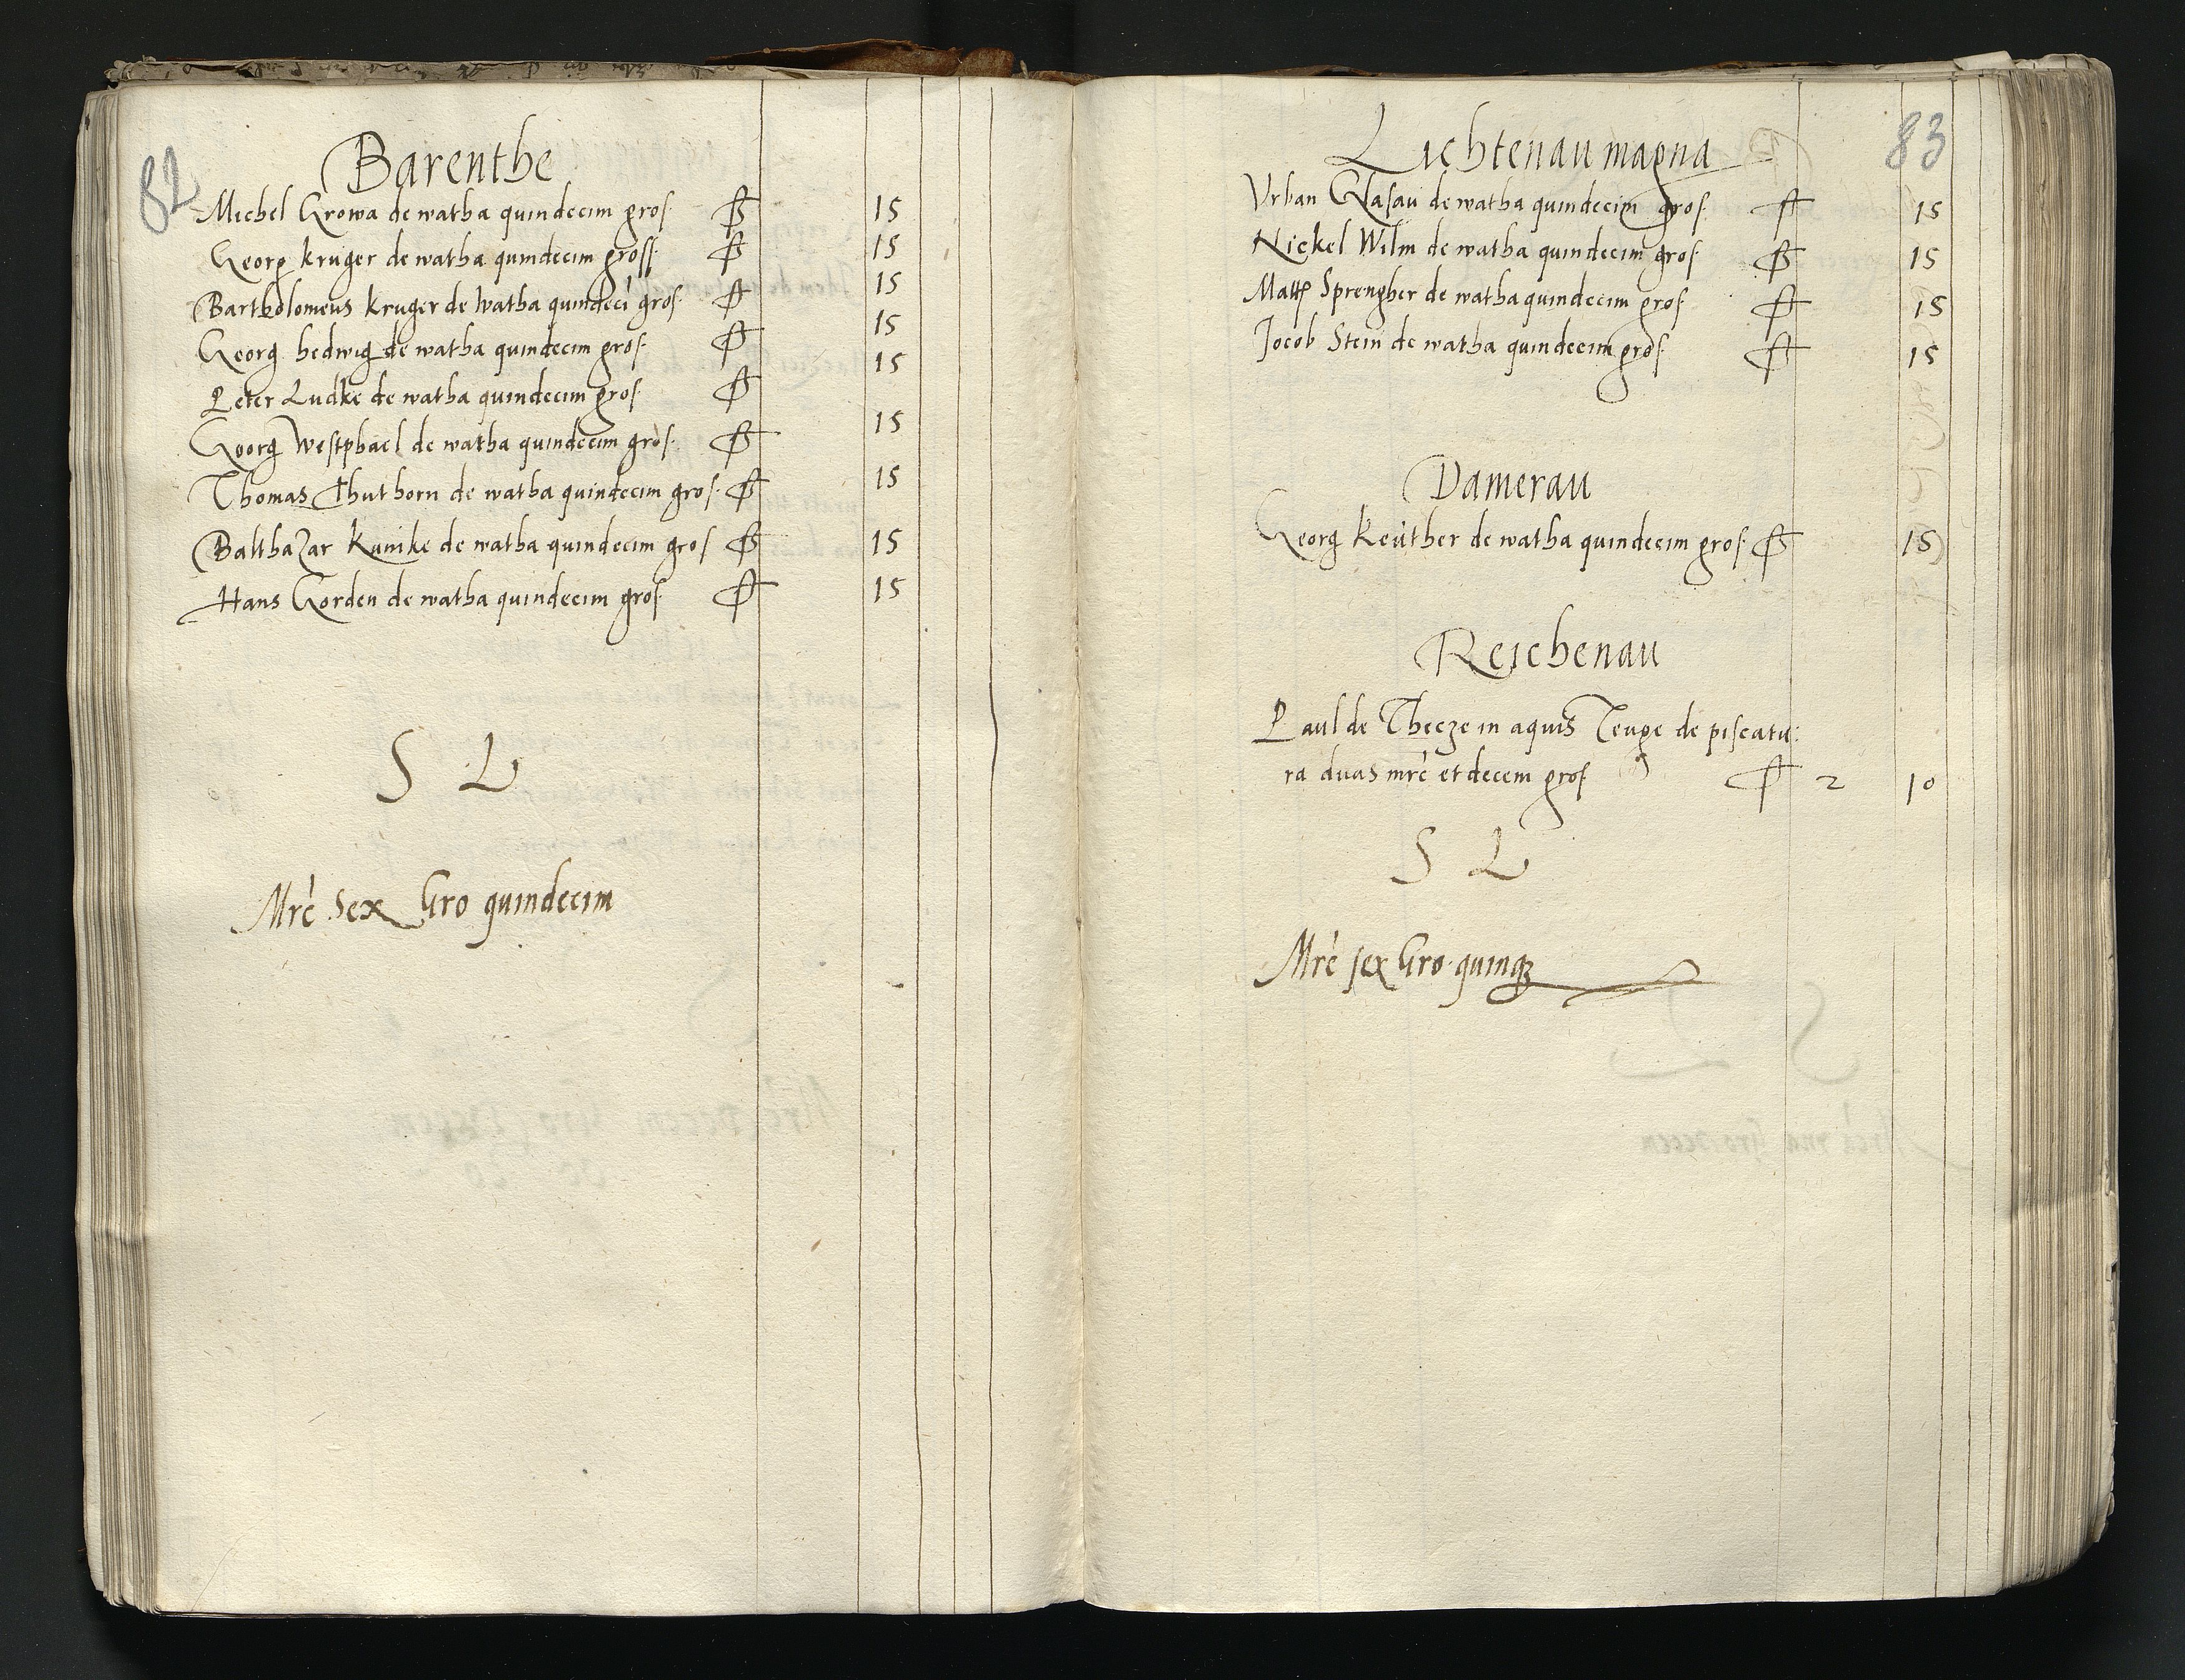 82
Barenthe
Michel Growa de watha quindecim gros. 15
Georg kruger de watha quindecim gross. 15
Bartholomeus kruger de watha quindecì gros. 15
Georg hedwig de watha quindecim gros. 15
Peter Ludke de watha quindecim gros. 15
Georg Westphael de watha quindecim gros. 15
Thomas Thuthorn de watha quindecim gros. 15
Balthazar Kunike de watha quindecim gros 15
Hans Gorden de watha quindecim gros. 15
S L
Mrc Sex Gro quindecim
83
Lichtenau magna
Vrban Glasau de watha quindecim gros. 15
Nickel Wilm de watha quindecim gros. 15
Matt Sprengher de watha quindecim gros 15
Jocob Stein de watha quindecim gros. 15
Damerau
Georg Keuther de watha quindecim gros. 15
Reichenau
Paul de Thecze in aquis Teuge de piscatu:
ra duas mrc et decem gros 2 10
S L
Mrc sex Gro quinqz